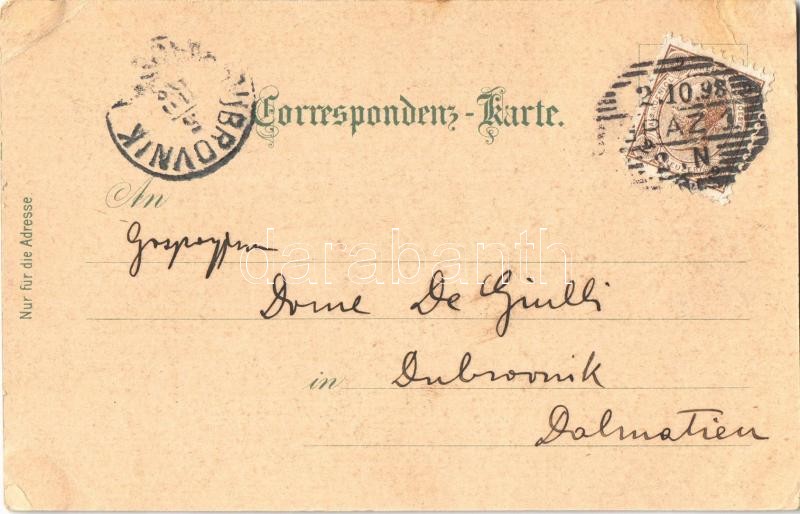 BROVNIK
Correspondenz-Karte.
2 10.98
AZ 1
N
An
Dome De Giulli
in Dubrovnik
Dalmatien
Nur für die Adresse
darabanth